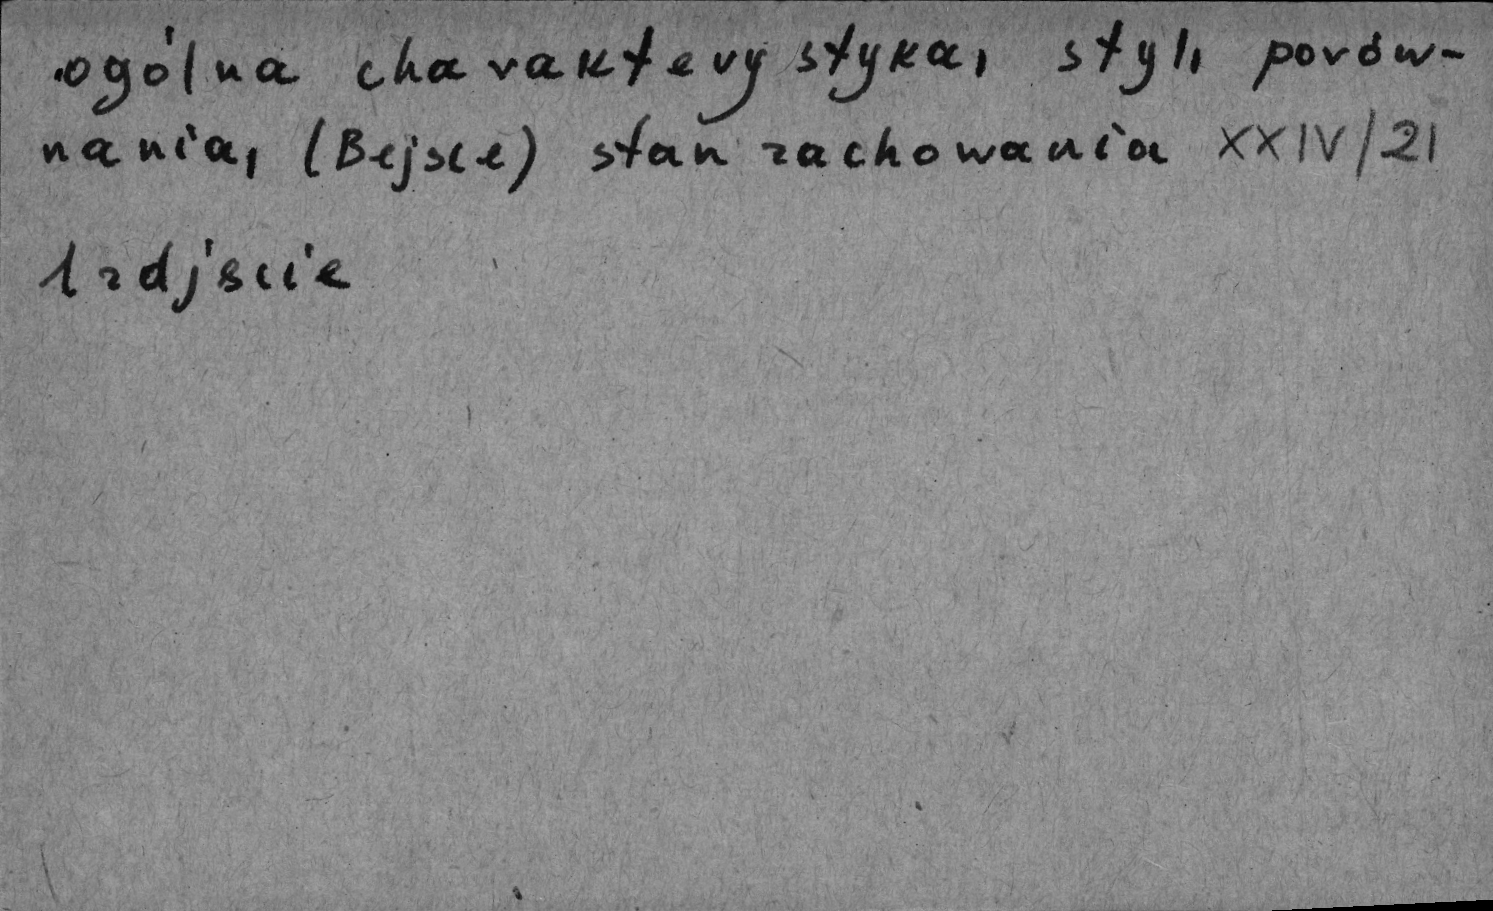 ogólna charakterystyka, styl, porów-
nania, (Bejsce) stan zachowania XXIV/21
1 zdjście